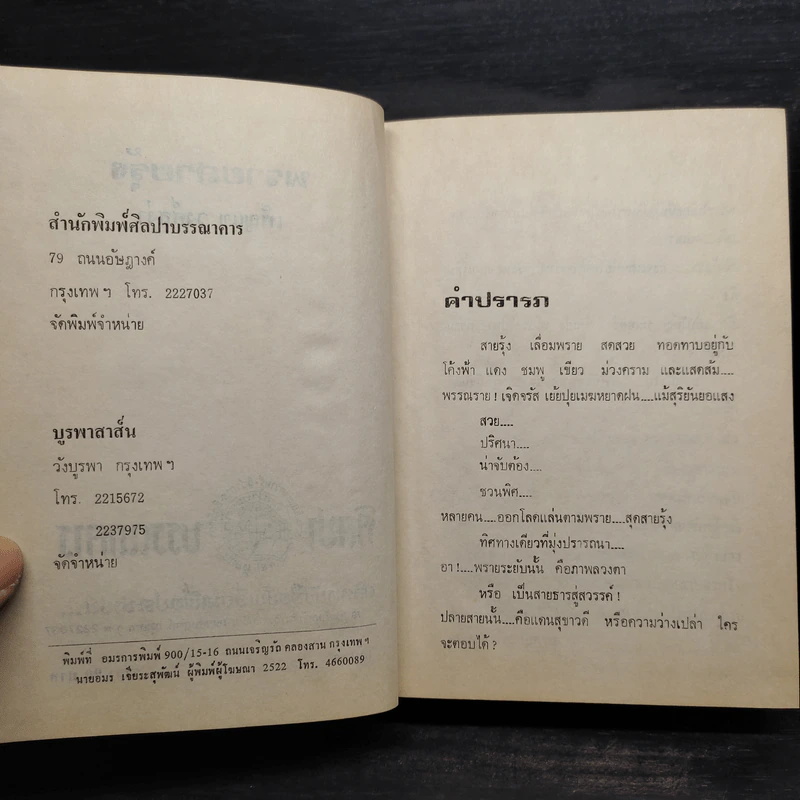 สำนักพิมพ์ศิลปาบรรณาคาร
79 ถนนอัษฎางค์
กรุงเทพฯ โทร. 2227037
จัดพิมพ์จำหน่าย
บูรพาสาส์น
วังบูรพา กรุงเทพฯ
โทร. 2215672
2237975
จัดจำหน่าย
พิมพ์ที่ อมรการพิมพ์ 900/15-16 ถนนเจริญรัถ คลองสาน กรุงเทพฯ
นายอมร เจียระสุพัฒน์ ผู้พิมพ์ผู้โฆษณา 2522 โทร. 4660089
คำปรารภ
สายรุ้ง เลื่อมพราย สดสวย ทอดทาบอยู่กับ
โค้งฟ้า แดง ชมพู เขียว ม่วงคราม และแสดส้ม....
พรรณราย! เจิดจรัส เย้ยปุยเมฆหยาดฝน....แม้สุริยันยอแสง
สวย....
ปริศนา....
น่าจับต้อง....
ชวนพิศ....
หลายคน....ออกโลดแล่นตามพราย....สุดสายรุ้ง
ทิศทางเดียวที่มุ่งปรารถนา....
อา!....พรายระยับนั้น คือภาพลวงตา
หรือ เป็นสายธารสู่สวรรค์!
ปลายสายนั้น....คือแดนสุขาวดี หรือความว่างเปล่า ใคร
จะตอบได้?